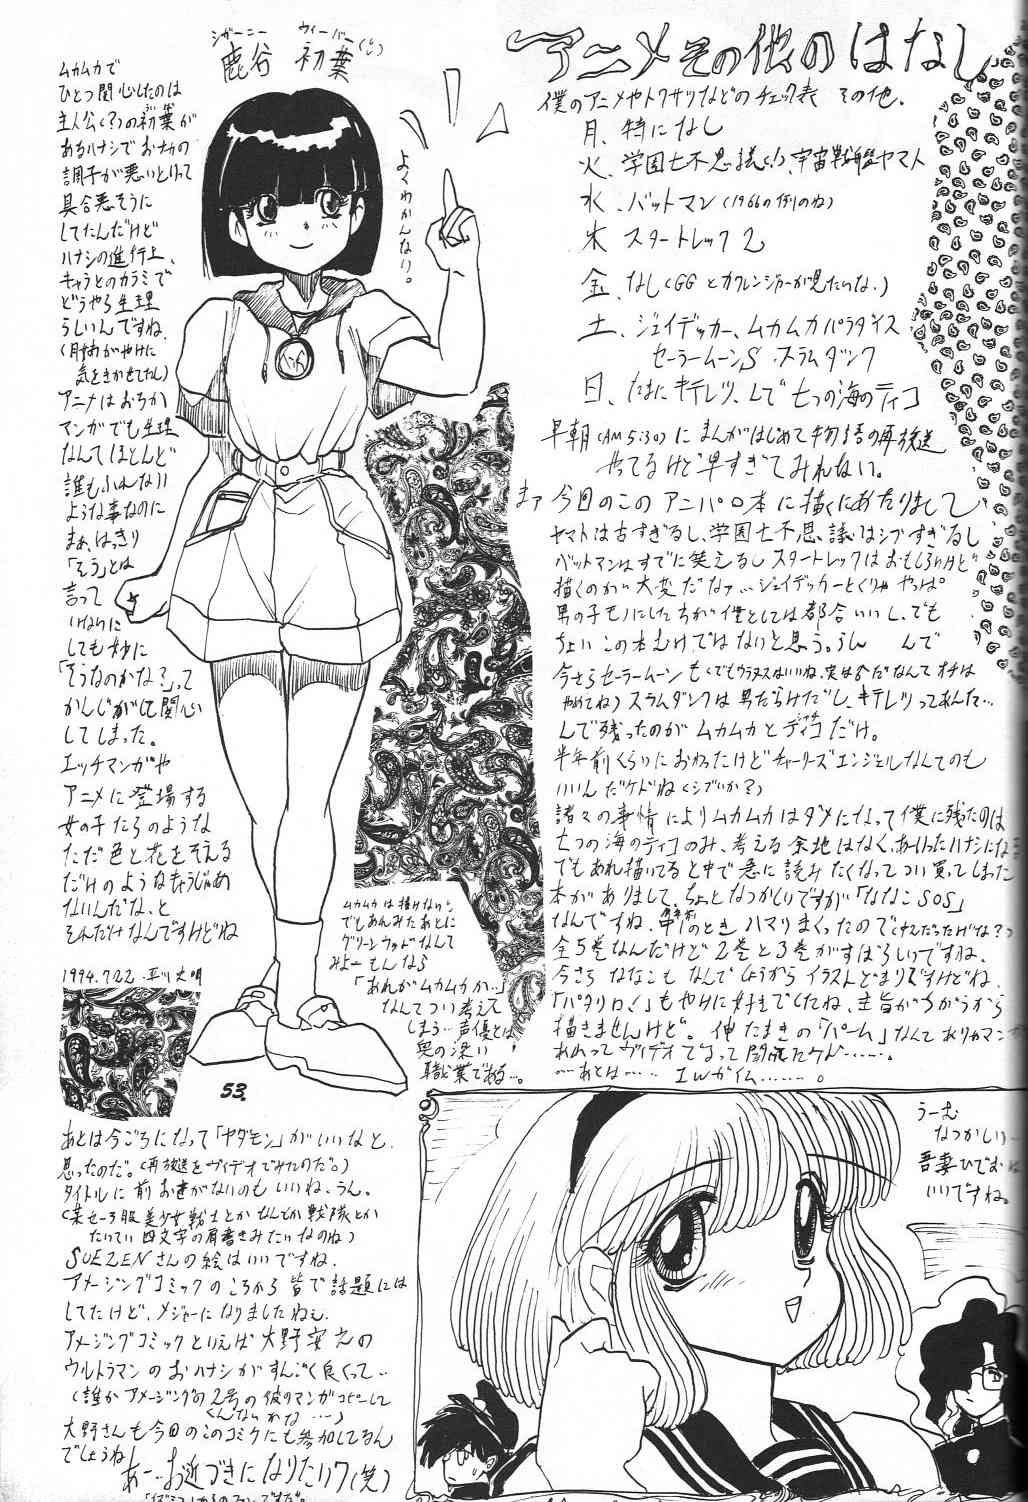 アニメその他のはなし
僕のアニメやトクサツなどのチェック表 その他.
月、特になし
火、学園七不思議(!)、宇宙戦艦ヤマト
水、バットマン(1966の例のね)
木 スタートレック2
金、なし(GGとカクレンジャーが見たいな.)
土、ジェイデッカー、ムカムカパラダイス
セーラームーンS・スラムダンク
日、たまにキテレツ、しで七つの海のティコ
早朝(AM5:30)にまんがはじめて物語の再放送
やってるけど早すぎてみれない?.
まァ今回のこのアニパロ本に描くにあたりまして
ヤマトは古すぎるし、学園七不思議はシブすぎるし
バットマンはすでに笑えるしスタートレックはおもしろいけど
描くのが大変だなァ...ジェイデッカーとくりゃやっぱ
男の子モノにしたちが僕としては都合いいし、でも
ちょいこの本むけではないと思う。うん んで
今さらセーラームーンも(でもウラヌスはいいね.実は
やめてね)スラムダンクは男だらけだし、キテレツってあんた...
んで残ったのがムカムカとティコだけ。
半年前くらいにおわったけどチャーリーズエンジェルなんてのも
いいんだケドね(シブいか?)
諸々の事情によりムカムカはダメになって僕に残ったのは
七つの海のティコのみ、考える余地はなく、あーいったハナシにな
でもあれ描いてると中で急に読みたくなってつい買ってしまった
本がありまして、ちょとなつかしいですが「ななこSOS」
なんですね、のときハマりまくったので
全5巻なんだけど2巻と3巻がすばらしいですね.
今さらななこもなんでしょうからイラストどまりですけどね.
「パタリロ!」もやけに好きでしたね、主旨がちがうから
描きませんけど。伸たまきの「パーム」なんてありゃマンガ
...あとは...... IWがイム........。
シガーニー ウィーバー
鹿谷 初葉
よくわかんない。
ムカムカで
ひとつ関心したのは
主人公(?)の初葉が
あるハナシでおナカの
調子が悪いといって
具合悪そうに
してたんだけど
ハナシの進行上、
キャラとのカラミで
どうやら生理
らしいんですね.
気をきかせてたし)
アニメはおろか
マンガでも生理
なんてほとんど
誰もふれない
ような事なのに
まぁ、はっきり
「そう」とは
言って
いないに
しても妙に
「そうなのかな?」って
かんじがして関心
してしまった。
エッチマンガや
アニメに登場する
女の子たちのような
ただ色と花をそえる
だけのようなもうじゃあ
ないんだな、と
それだけなんですけどね
1994.7.22
ムカムカは描けない。
でもあんみたあとに
グリーンウッドなんて
みよーもんなら
「あれがムカムカか..」
なんてつい考えて
しまう...声優とは
奥の深い
職業でね...。
53.
あとは今ごろになって「ヤダモン」がいいなと.
思ったのだ。(再放送をヴィデオでみたのだ。)
タイトルに前おきがないのもいいね、うん.
(某セーラ服美少女戦士とかなんでか戦隊とか
たいてい四文字の肩書きみたいなのね)
SUEZENさんの絵はいいですね.
アメージングコミックのころから皆で話題には
してたけど、メジャーになりましたねぇ.
アメージングコミックといえば大野安之の
ウルトラマンのおハナシがすんごく良くって..
(誰かアメージングの2号の彼のマンガコピーして
くんないかな...)
大野さんも今回のこのコミケにも参加してるん
でしょうね
あー..お近づきになりたいワ(笑)
うーむ
なつかしいー
吾妻ひでおね
いいですね。